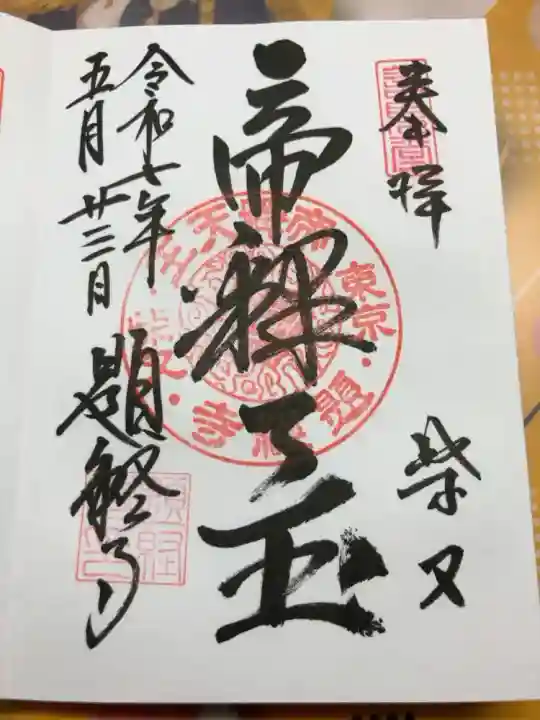 奉拝
柴又
帝釈天王
令和七年
五月廿三日
題経寺
東京・柴又・題経寺
帝釈天王
題経寺